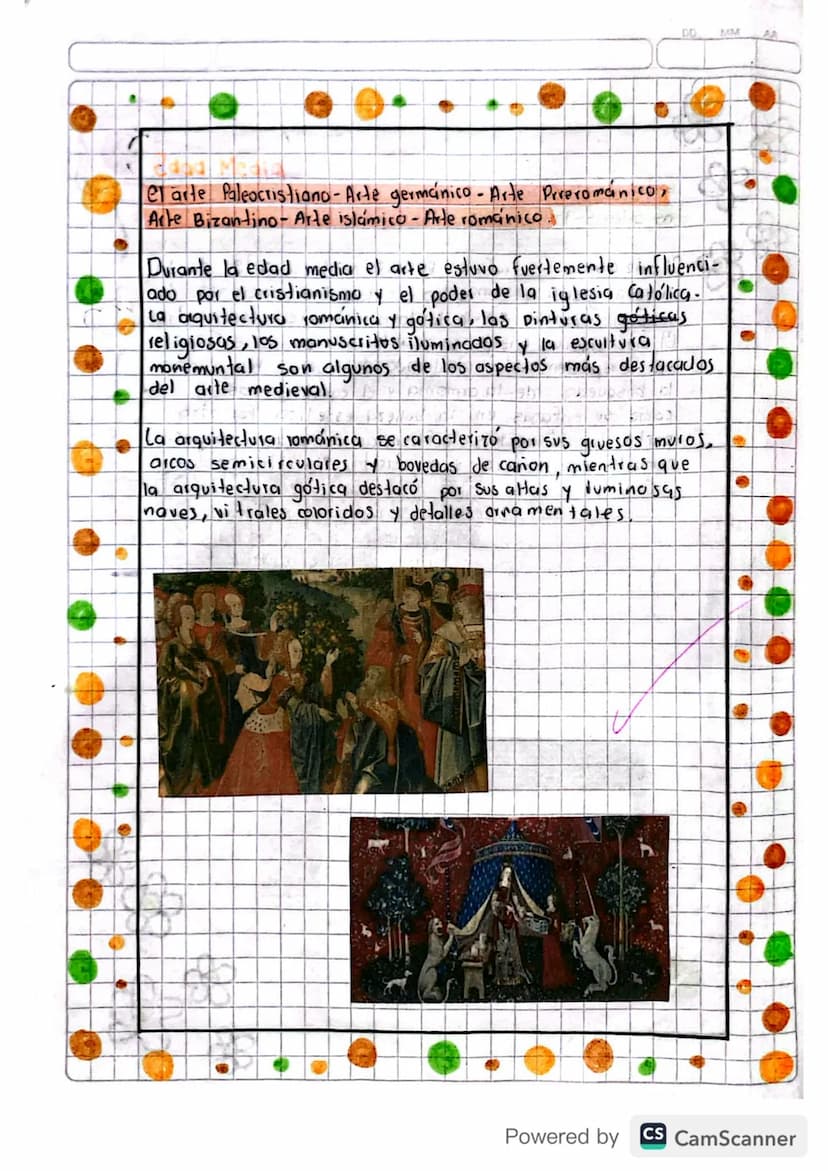 DD MM AA
Edad Media
El arte Paleocristiano - Arte germánico - Arte Prrerománico,
Arte Bizantino - Arte islámico - Arte románico.
Durante la edad media el arte estuvo fuertemente influenci-
ado por el cristianismo y el poder de la iglesia católica.
La arquitectura románica y gótica, las pinturas góticas
religiosas, los manuscritos iluminados y la escultura
monemuntal son algunos de los aspectos más destacados
del arte medieval.
La arquitectura románica se caracterizó por sus gruesos muros,
arcos semicirculares y bovedas de cañon, mientras que
la arquitectura gótica destacó por sus altas y luminosas
naves, vitrales coloridos y detalles ornamentales.
Powered by CS CamScanner